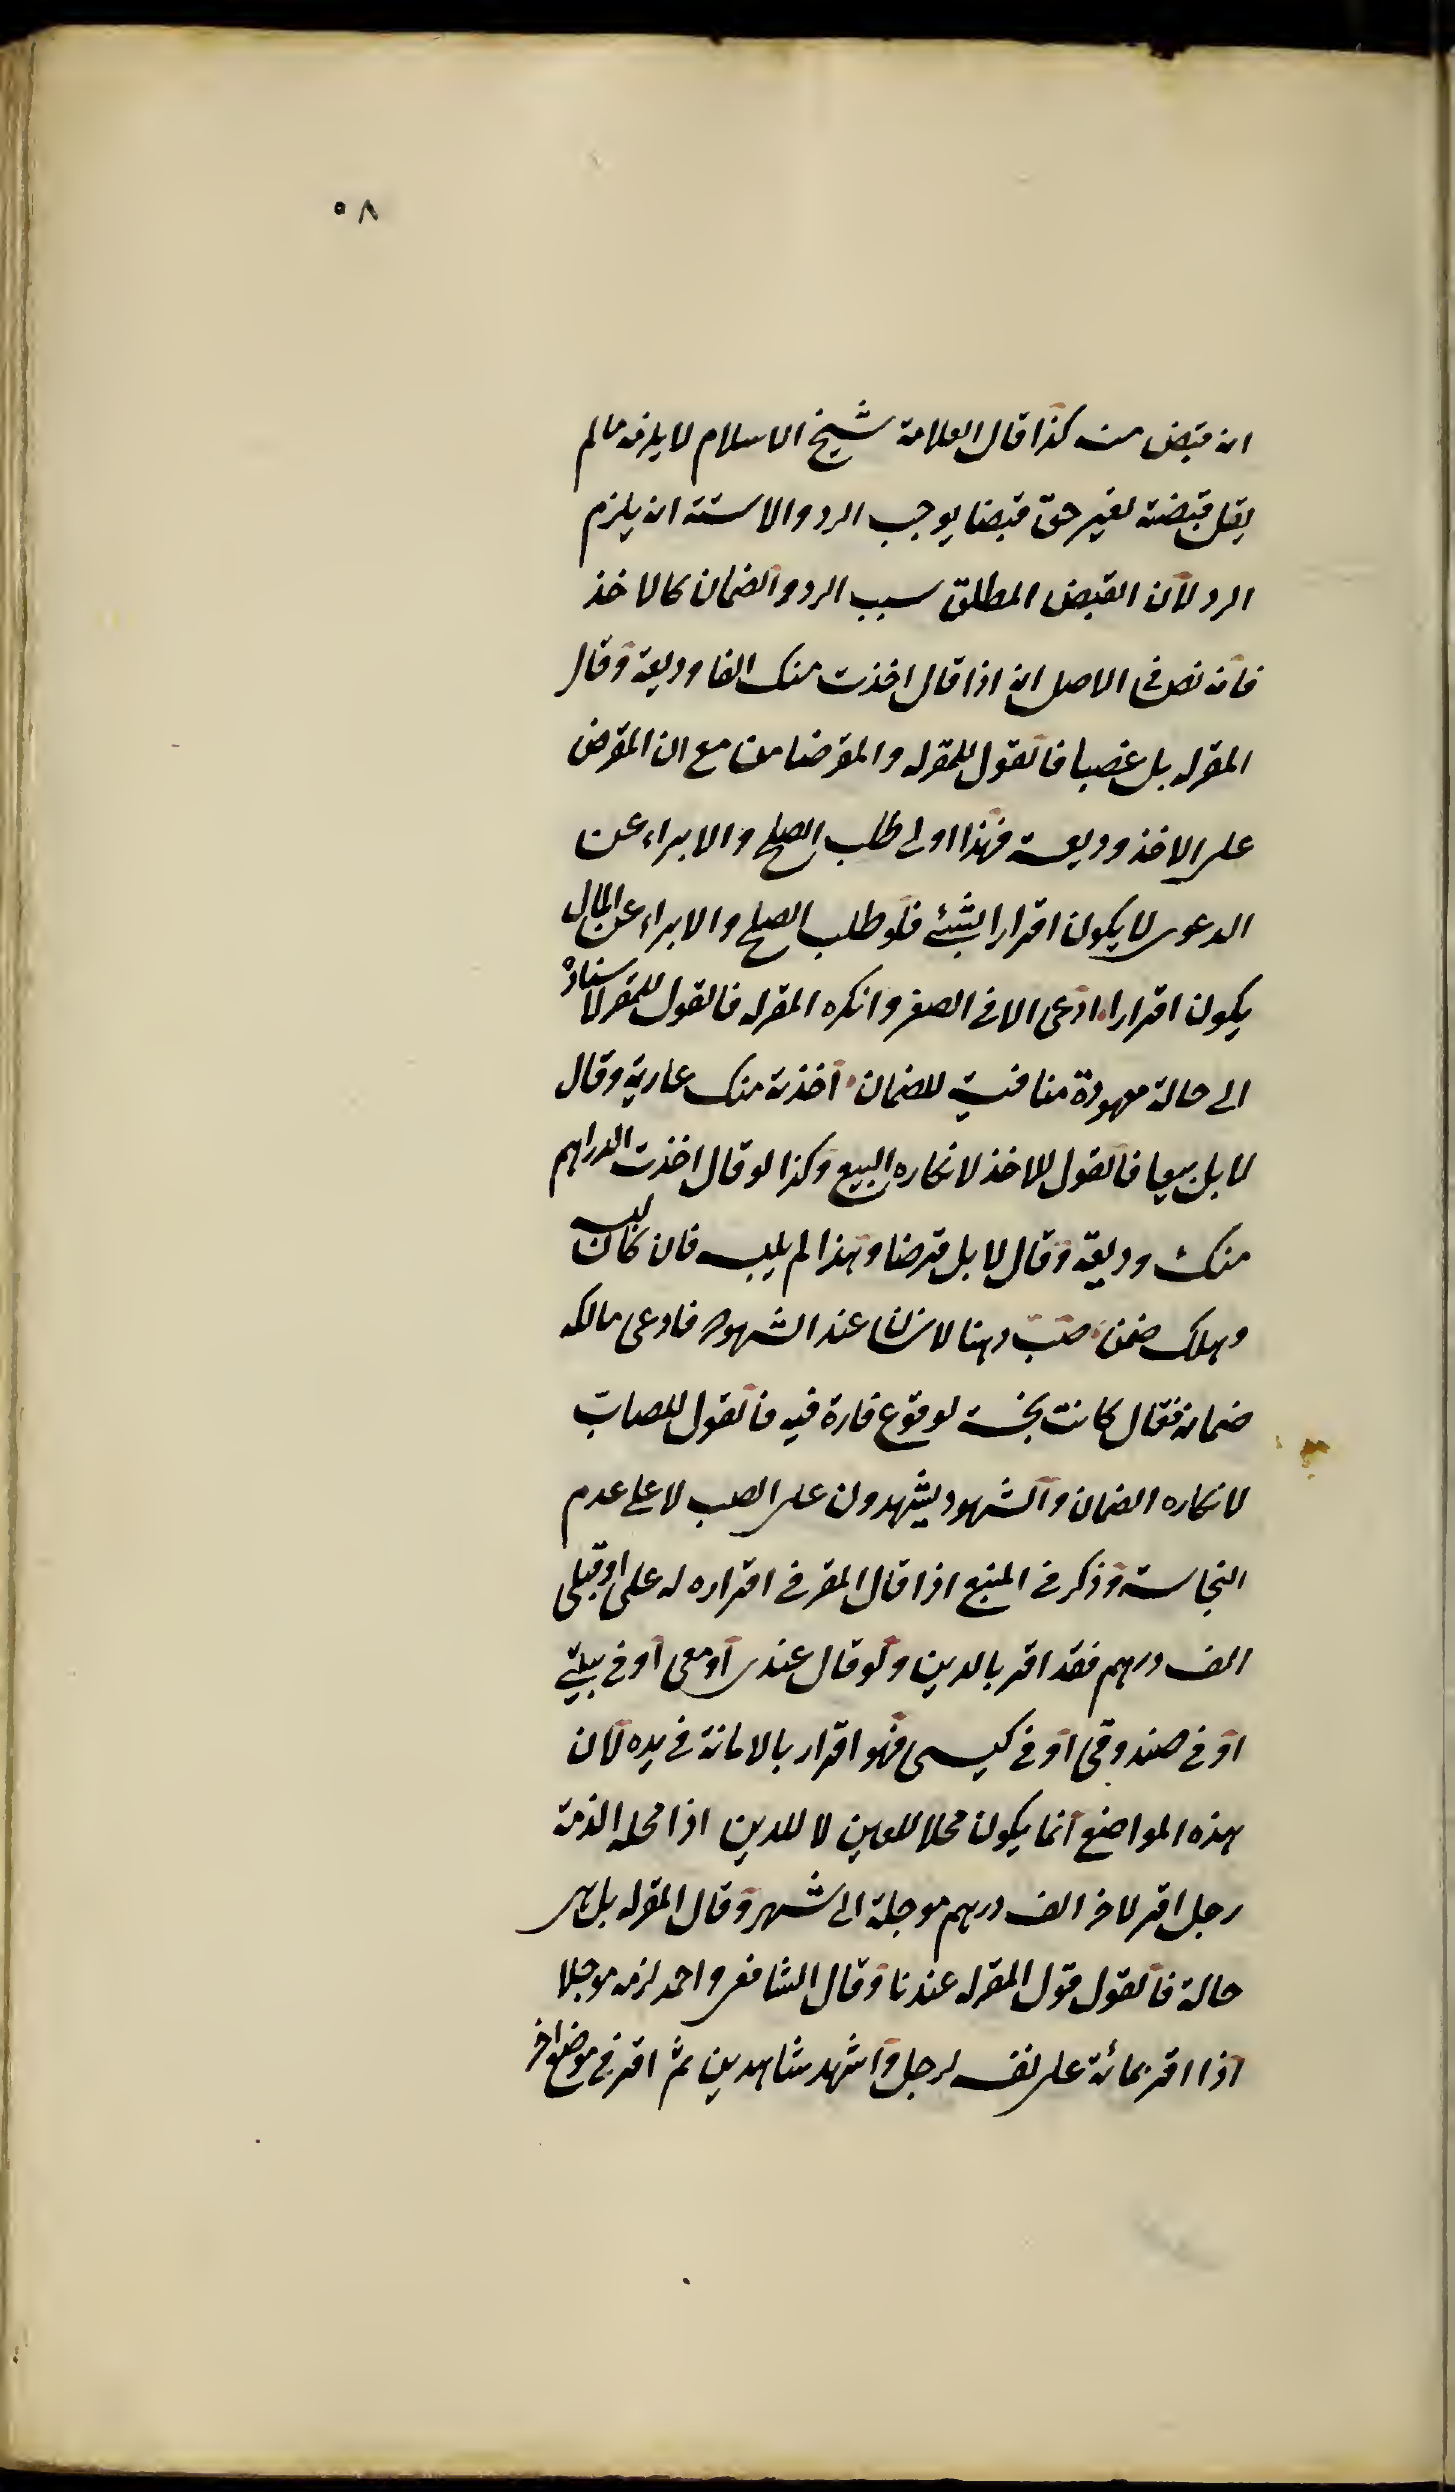 ٥٨
انه قبض منه كذا قال العلامة شيخ الاسلام لا يلزمه ما لم
يقل قبضته بغير حق قبضا يوجب الرد والاشبه انه يلزم
الرد لان القبض المطلق سبب الرد والضمان كالاخذ
فانه نص فى الاصل انه اذا قال اخذت منك الفا وديعة وقال
المقر له بل غصبا فالقول للمقر له والمقر ضامن مع ان المقر نص
على الاخذ وديعة فهذا اولى طلب الصلح والابراء عن
الدعوى لا يكون اقرارا بشئ فلو طلب الصلح والابراء عن المال
يكون اقرارا ادعى الا فى الصغر وانكره المقر له فالقول للمقر لاسناده
الى حالة معهودة منافية للضمان اخذته منك عارية وقال
لا بل بيعا فالقول للاخذ لانكاره البيع وكذا لو قال اخذت الدراهم
منك وديعة وقال لا بل قرضا وهذا لم يلبسه فان كان لبسه
وهلك ضمن صب دهنا لانسان عند الشهود فادعى مالكه
ضمانه فقال كانت نجسة لوقوع فارة فيه فالقول للصاب
لانكاره الضمان والشهود يشهدون على الصب لا على عدم
النجاسة وذكر فى المنبع اذا قال المقر فى اقراره له على او قبلى
الف درهم فقد اقر بالدين ولو قال عندى او معى او فى بيتى
او فى صندوقى او فى كيسى فهو اقرار بالامانة فى يده لان
هذه المواضع انما يكون محلا للعين لا للدين اذا محله الذمة
رجل اقر لاخر الف درهم موجلة الى شهر وقال المقر له بل هى
حالة فالقول قول المقر له عندنا وقال الشافعى واحمد لزمه موجلا
اذا اقر بمائة على نفسه لرجل واشهد شاهدين ثم اقر فى موضع اخر